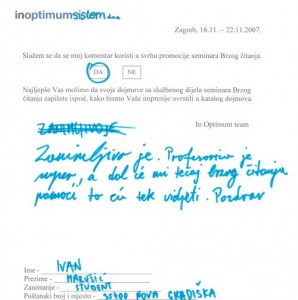 inoptimumsistem d.n.o.
Zagreb, 16.11. – 22.11.2007.
Slažem se da se moj komentar koristi u svrhu promocije seminara Brzog čitanja.
DA NE
Najljepše Vas molimo da svoje dojmove sa službenog dijela seminara Brzog
čitanja zapišete ispod, kako bismo Vaše impresije uvrstili u katalog dojmova.
In Optimum team
ZANIMLJIVOJE
Zanimljivo je. Profesorica je
super, a dal će mi tečaj brzog čitanja
pomoći to ću tek vidjeti. Pozdrav
Ime - IVAN
Prezime - MARUŠIĆ
Zanimanje - STUDENT
Poštanski broj i mjesto - 35400 NOVA GRADIŠKA